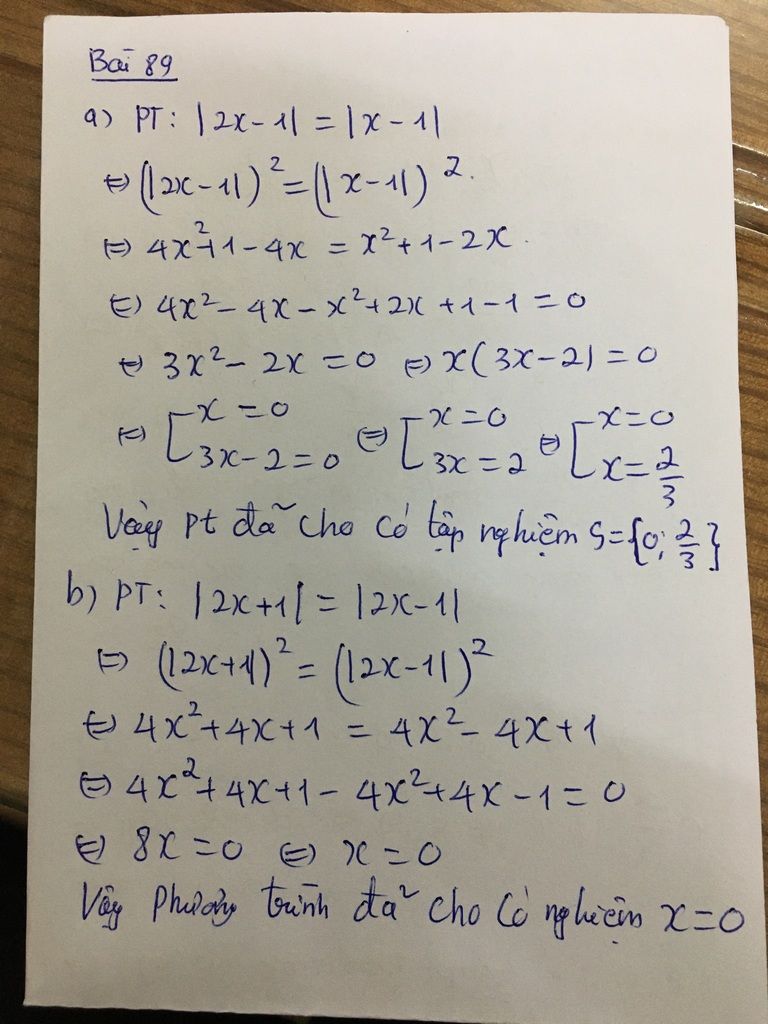 Bài 89
a) PT: |2x-1| = |x-1|
⇔ (|2x-1|)² = (|x-1|)².
⇔ 4x²+1-4x = x²+1-2x.
⇔ 4x²-4x-x²+2x+1-1=0
⇔ 3x²-2x=0 ⇔ x(3x-2)=0
⇔ [x=0 ⇔ [x=0 ⇔ [x=0
3x-2=0 3x=2 x=2/3
Vậy pt đã cho có tập nghiệm S={0; 2/3}
b) PT: |2x+1| = |2x-1|
⇔ (|2x+1|)² = (|2x-1|)²
⇔ 4x²+4x+1 = 4x²-4x+1
⇔ 4x²+4x+1-4x²+4x-1=0
⇔ 8x=0 ⇔ x=0
Vậy Phương trình đã cho có nghiệm x=0